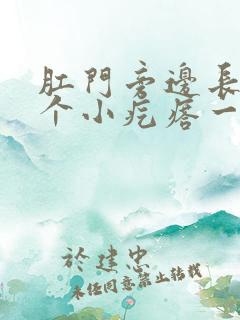 肛門旁邊長
个小疙瘩一
於建忠
未经同意禁止转载